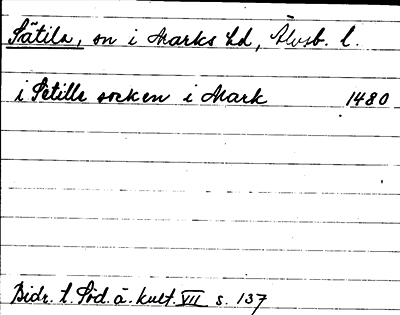 Sätila, sn i Marks hd, Älvsb. l.
i Setille socken i Mark 1480
Bidr. t. Söd. ä. kult. VII s. 137